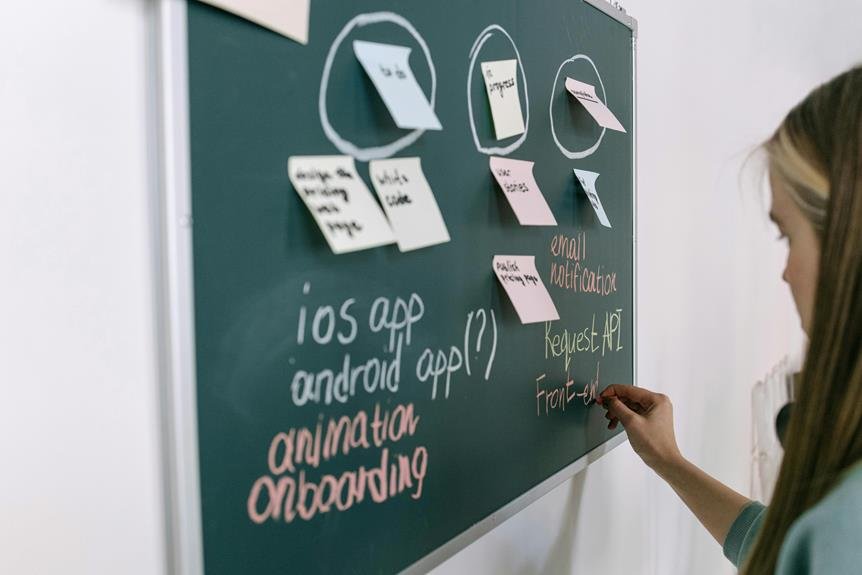 to do
in
progress
design the
pricing web
page
write
code
user
stories
publish
pricing page
ios app
android app(?)
animation
onboarding
email
notification
Request API
Front-end